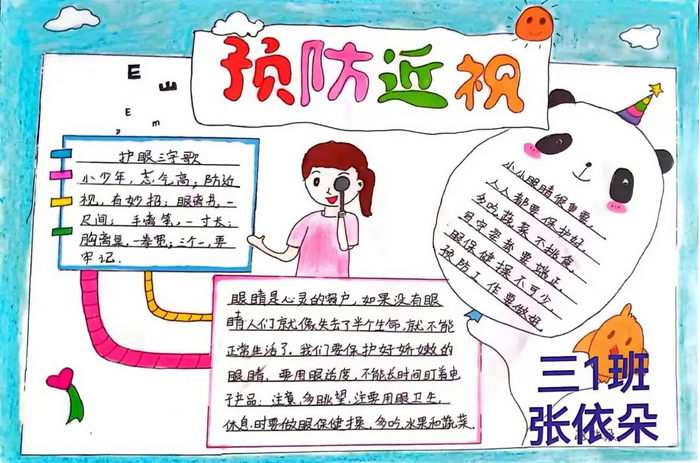 预防近视
E
E
E
m
护眼三字歌
小少年，志气高，防近
视，有妙招：眼离书，一
尺间；手离笔，一寸长；
胸离桌，一拳宽；三个一，要
牢记.
小小眼睛很重要，
人人都要保护好，
多吃蔬菜不挑食，
眼保健操不可少，
预防工作要做好.
眼睛是心灵的窗户，如果没有眼
睛人们就像失去了半个生命，就不能
正常生活了.我们要保护好娇嫩的
眼睛，要用眼适度，不能长时间盯着电
子产品；注意，多眺望，注要用眼卫生.
休息时要做眼保健操，多吃水果和蔬菜.
三1班
张依朵